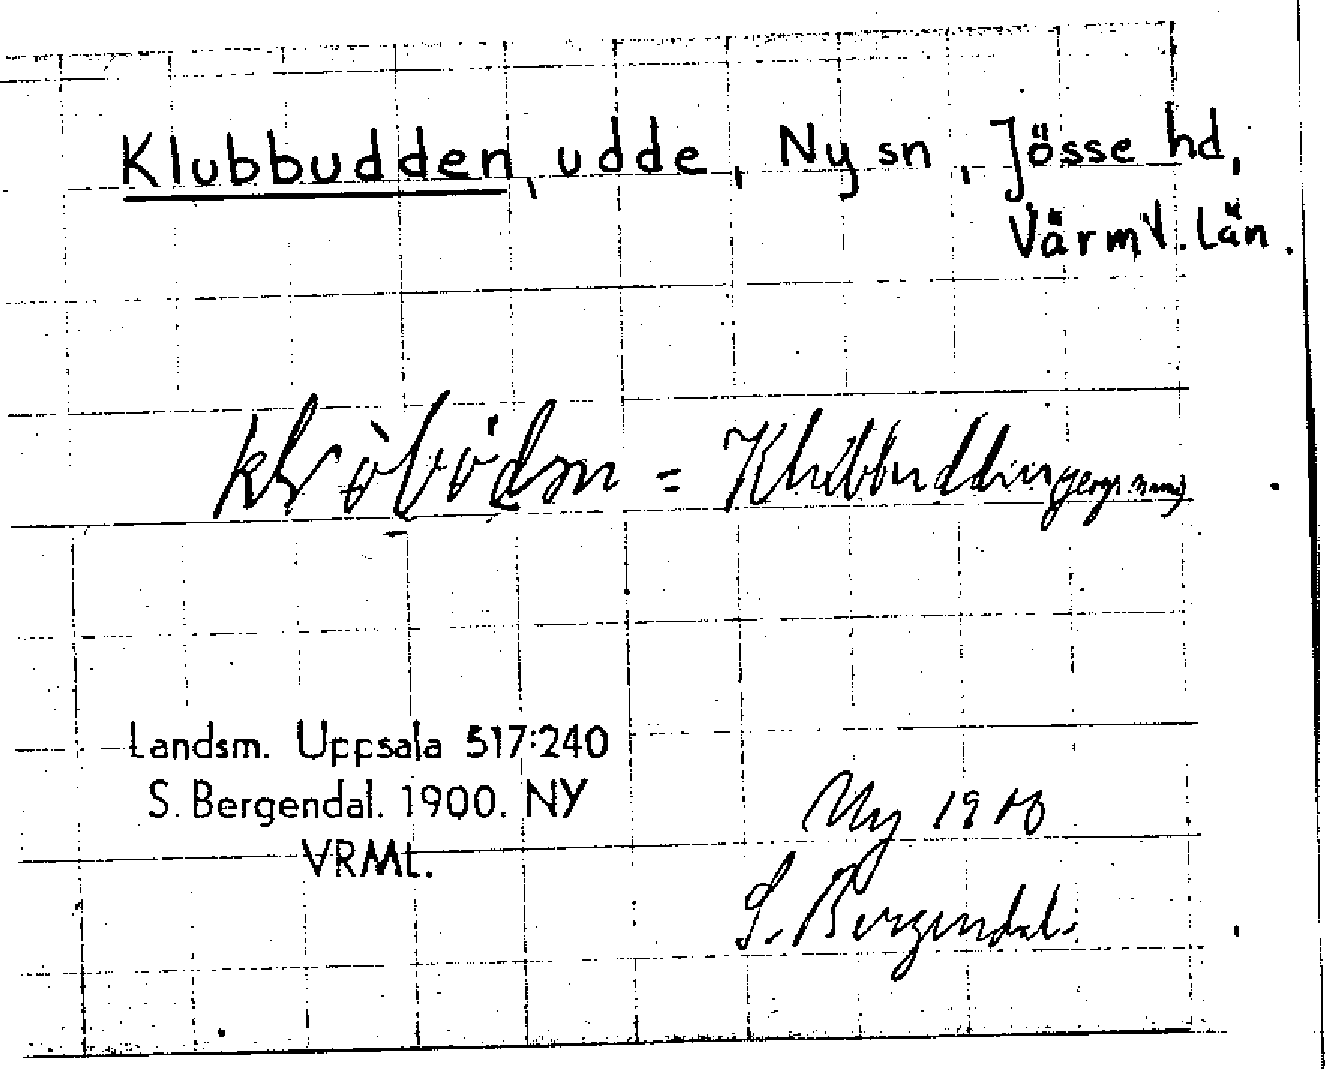 Klubbudden, udde, Ny sn, Jösse hd,
Värml. län.
= Klubbudden
Landsm. Uppsala 517:240
S. Bergendal. 1900. NY
VRML.
Ny 1900
S. Bergendal.